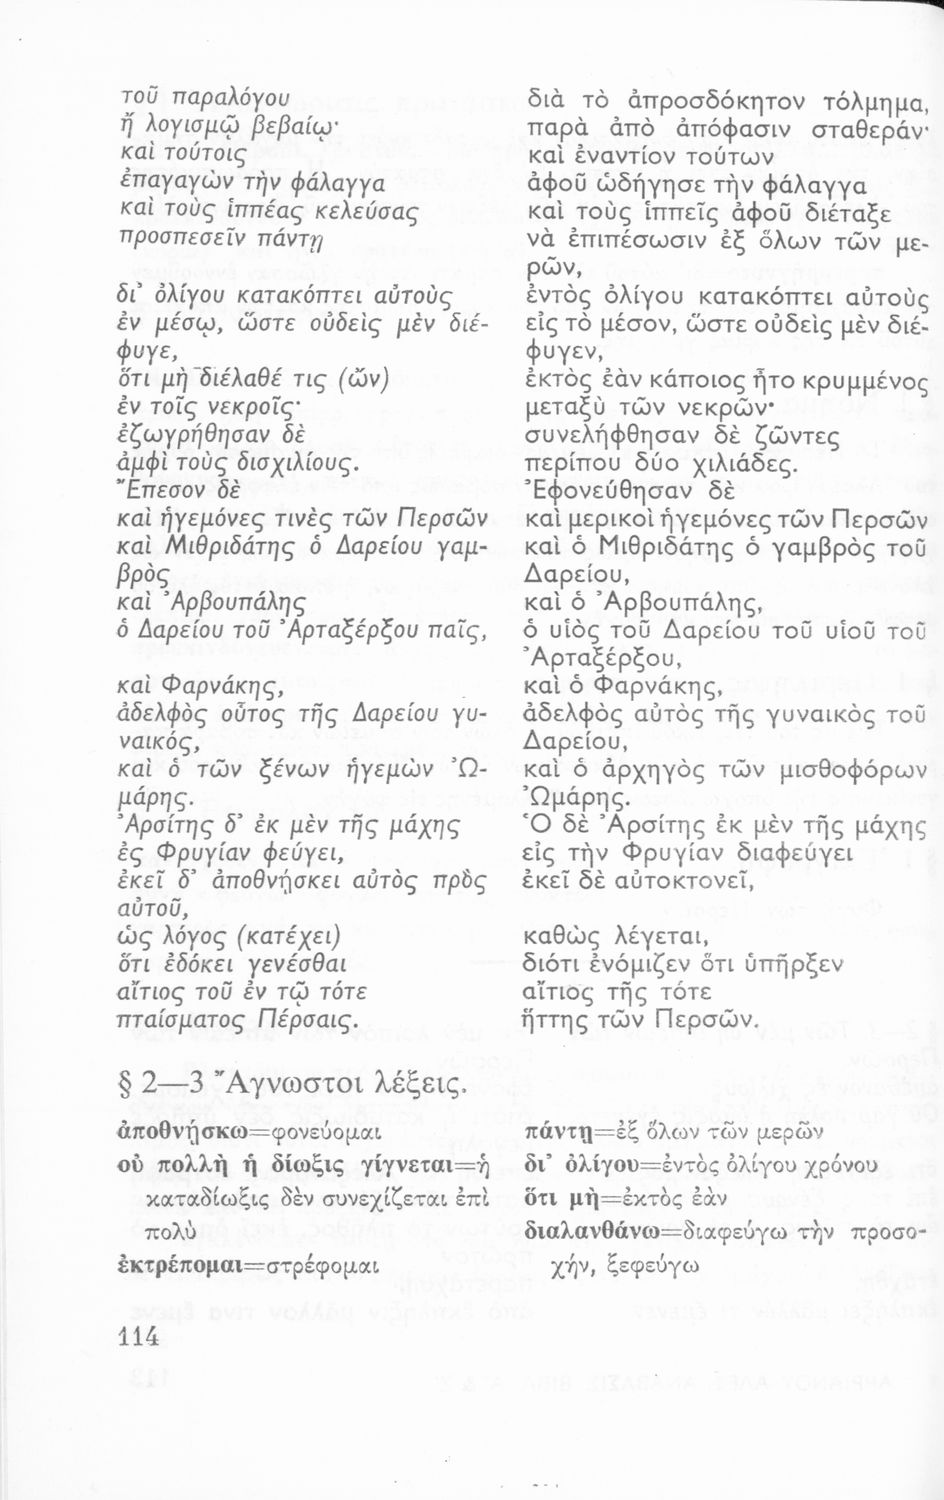 τοῦ παραλόγου
ἢ λογισμῷ βεβαίῳ·
καὶ τούτοις
ἐπαγαγὼν τὴν φάλαγγα
καὶ τοὺς ἱππέας κελεύσας
προσπεσεῖν πάντῃ
δι᾿ ὀλίγου κατακόπτει αὐτοὺς
ἐν μέσῳ, ὥστε οὐδεὶς μὲν διέ-
φυγε,
ὅτι μὴ διέλαθέ τις (ὢν)
ἐν τοῖς νεκροῖς·
ἐζωγρήθησαν δὲ
ἀμφὶ τοὺς δισχιλίους.
Ἔπεσον δὲ
καὶ ἡγεμόνες τινὲς τῶν Περσῶν
καὶ Μιθριδάτης ὁ Δαρείου γαμ-
βρὸς
καὶ Ἀρβουπάλης
ὁ Δαρείου τοῦ Ἀρταξέρξου παῖς,
καὶ Φαρνάκης,
ἀδελφὸς οὗτος τῆς Δαρείου γυ-
ναικός,
καὶ ὁ τῶν ξένων ἡγεμὼν Ὠ-
μάρης.
Ἀρσίτης δ᾿ ἐκ μὲν τῆς μάχης
ἐς Φρυγίαν φεύγει,
ἐκεῖ δ᾿ ἀποθνῄσκει αὐτὸς πρὸς
αὐτοῦ,
ὡς λόγος (κατέχει)
ὅτι ἐδόκει γενέσθαι
αἴτιος τοῦ ἐν τῷ τότε
πταίσματος Πέρσαις.
διὰ τὸ ἀπροσδόκητον τόλμημα,
παρὰ ἀπὸ ἀπόφασιν σταθεράν·
καὶ ἐναντίον τούτων
ἀφοῦ ὡδήγησε τὴν φάλαγγα
καὶ τοὺς ἱππεῖς ἀφοῦ διέταξε
νὰ ἐπιπέσωσιν ἐξ ὅλων τῶν με-
ρῶν,
ἐντὸς ὀλίγου κατακόπτει αὐτοὺς
εἰς τὸ μέσον, ὥστε οὐδεὶς μὲν διέ-
φυγεν,
ἐκτὸς ἐὰν κάποιος ἦτο κρυμμένος
μεταξὺ τῶν νεκρῶν·
συνελήφθησαν δὲ ζῶντες
περίπου δύο χιλιάδες.
Ἐφονεύθησαν δὲ
καὶ μερικοὶ ἡγεμόνες τῶν Περσῶν
καὶ ὁ Μιθριδάτης ὁ γαμβρὸς τοῦ
Δαρείου,
καὶ ὁ Ἀρβουπάλης,
ὁ υἱὸς τοῦ Δαρείου τοῦ υἱοῦ τοῦ
Ἀρταξέρξου,
καὶ ὁ Φαρνάκης,
ἀδελφὸς αὐτὸς τῆς γυναικὸς τοῦ
Δαρείου,
καὶ ὁ ἀρχηγὸς τῶν μισθοφόρων
Ὠμάρης.
Ὁ δὲ Ἀρσίτης ἐκ μὲν τῆς μάχης
εἰς τὴν Φρυγίαν διαφεύγει
ἐκεῖ δὲ αὐτοκτονεῖ,
καθὼς λέγεται,
διότι ἐνόμιζεν ὅτι ὑπῆρξεν
αἴτιος τῆς τότε
ἥττης τῶν Περσῶν.
§ 2—3 Ἄγνωστοι λέξεις.
ἀποθνῄσκω=φονεύομαι
οὐ πολλὴ ἡ δίωξις γίγνεται=ἡ
καταδίωξις δὲν συνεχίζεται ἐπὶ
πολὺ
ἐκτρέπομαι=στρέφομαι
πάντῃ=ἐξ ὅλων τῶν μερῶν
δι᾿ ὀλίγου=ἐντὸς ὀλίγου χρόνου
ὅτι μὴ=ἐκτὸς ἐὰν
διαλανθάνω=διαφεύγω τὴν προσο-
χήν, ξεφεύγω
114